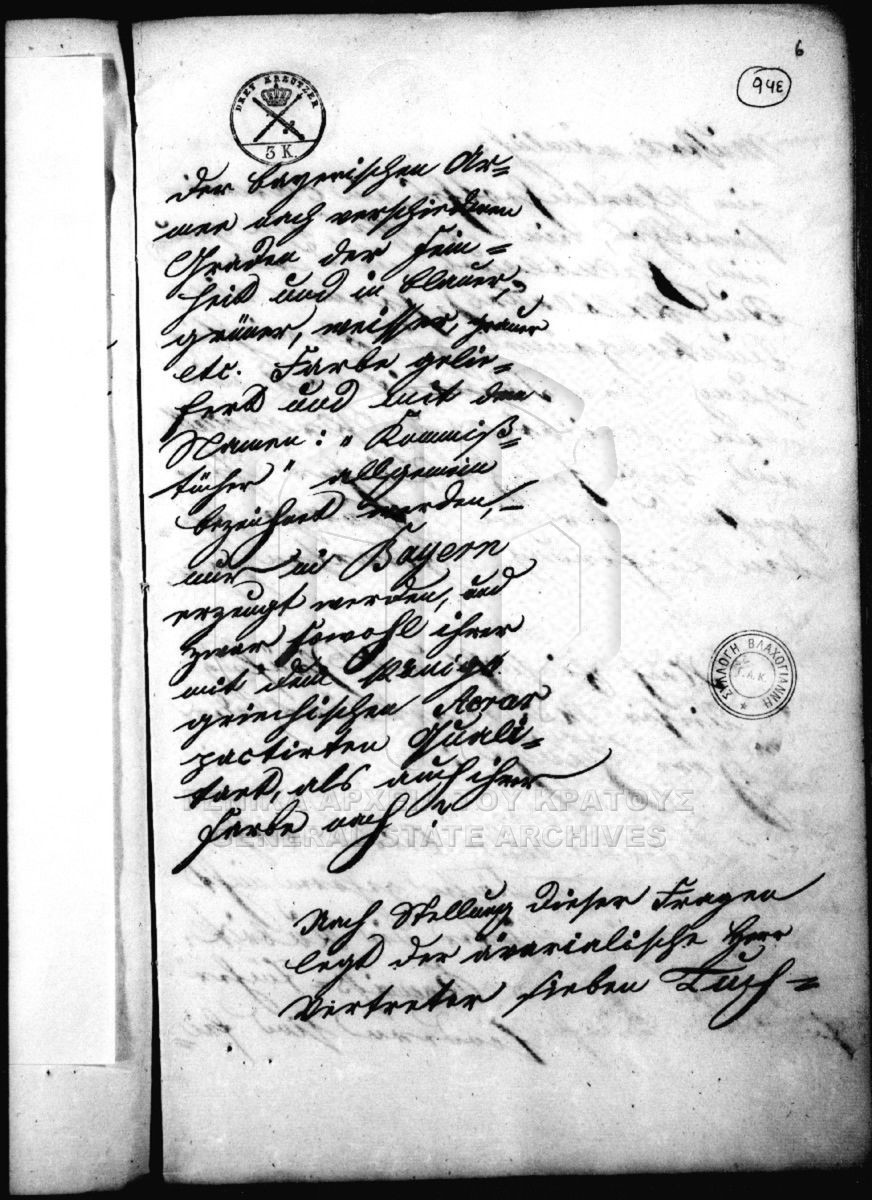 6
94ε
DREY KREUTZER
3 K.
der bayerischen Ar=
mee nach verschiedenen
Graden der Fein=
heit und in blauer,
grüner, weisser, grauer
etc. Farbe gelie=
fert und mit dem
Namen: „Kommiß=
tücher" allgemein
bezeichnet werden,—
nur in Bayern
erzeugt werden, und
zwar sowohl ihrer
mit dem königl.
griechischen Aerar
pactirten Quali=
taet, als auch ihrer
Farbe nach?
ΣΥΛΛΟΓΗ ΒΛΑΧΟΓΙΑΝΝΗ
Γ.Α.Κ.
ΑΡΧΕΙΑ ΤΟΥ ΚΡΑΤΟΥΣ
GENERAL STATE ARCHIVES
Nach Stellung dieser Fragen
legt der ärarialische Herr
Vertreter sieben Tuch=